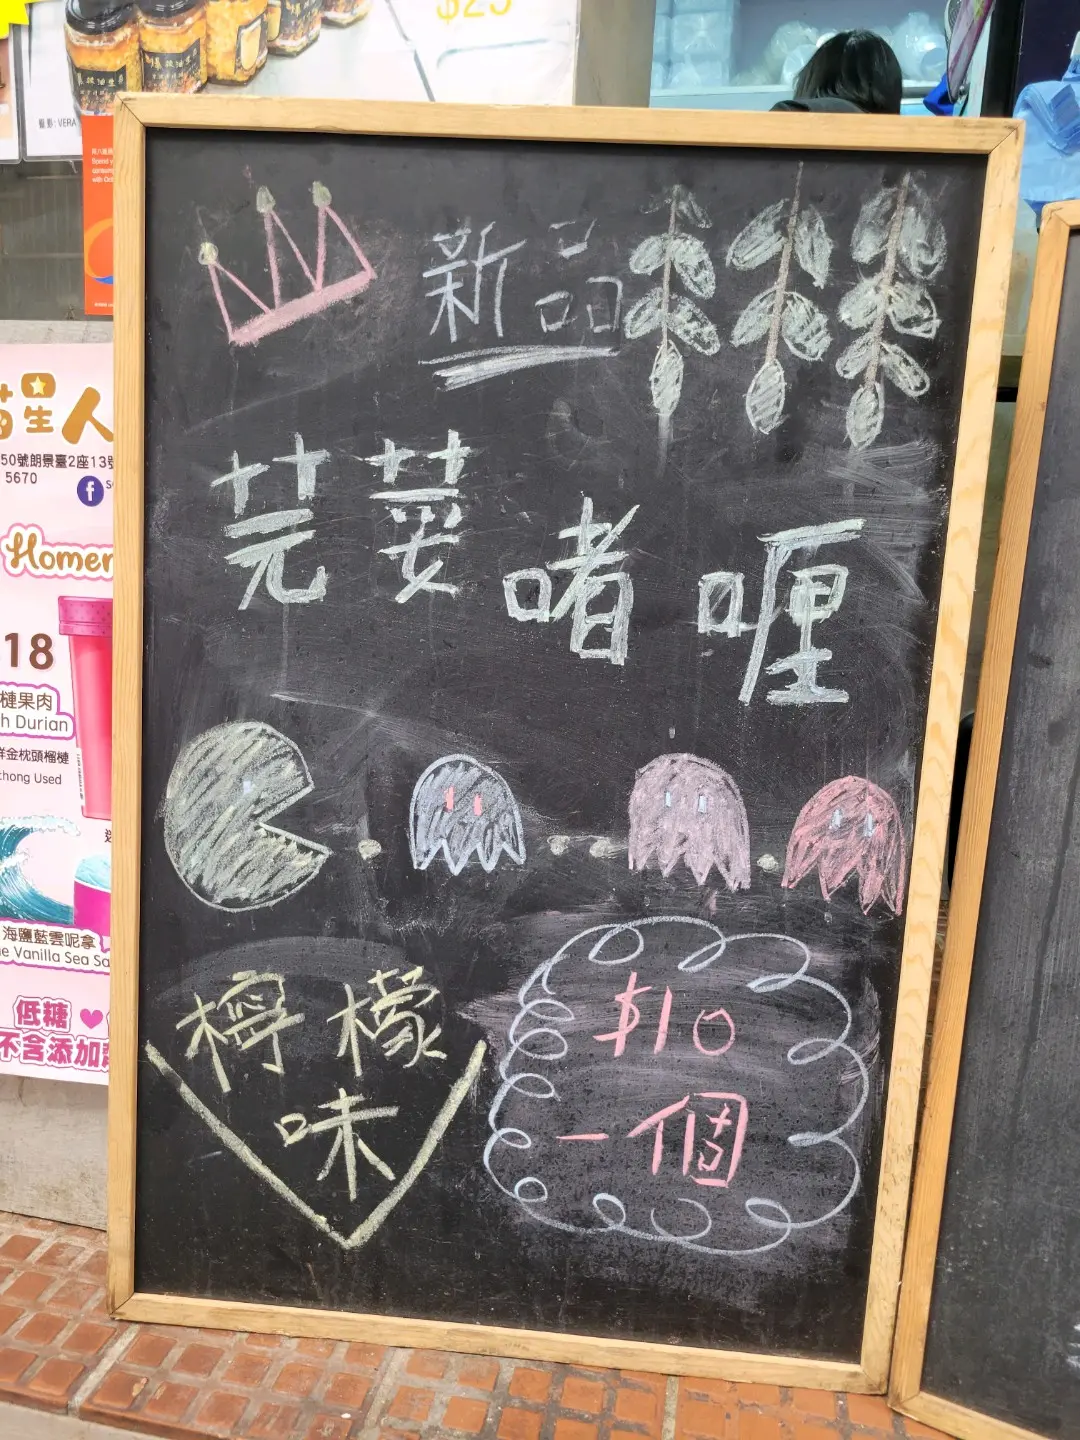 $25
攝影: VERA
新品
芫荽啫喱
檸檬
味
$10
一個
星人
50號朗景臺2座13號
5670
Homer
18
槤果肉
h Durian
鮮金枕頭榴槤
thong Used
海鹽藍雲呢拿
e Vanilla Sea Sa
低糖
不含添加